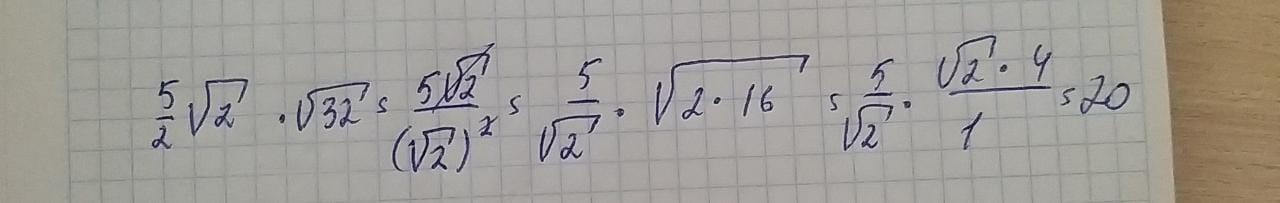 5/2 √2 · √32 = 5√2/(√2)² = 5/√2 · √(2·16) = 5/√2 · √2·4/1 = 20